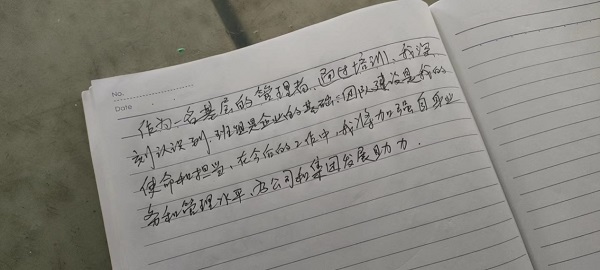 No.
Date
作为一名基层的管理者，通过培训，我深
刻认识到，班组是企业的基础，团队建设是我的
使命和担当，在今后的工作中，我将加强自身业
务和管理水平，为公司和集团发展助力．